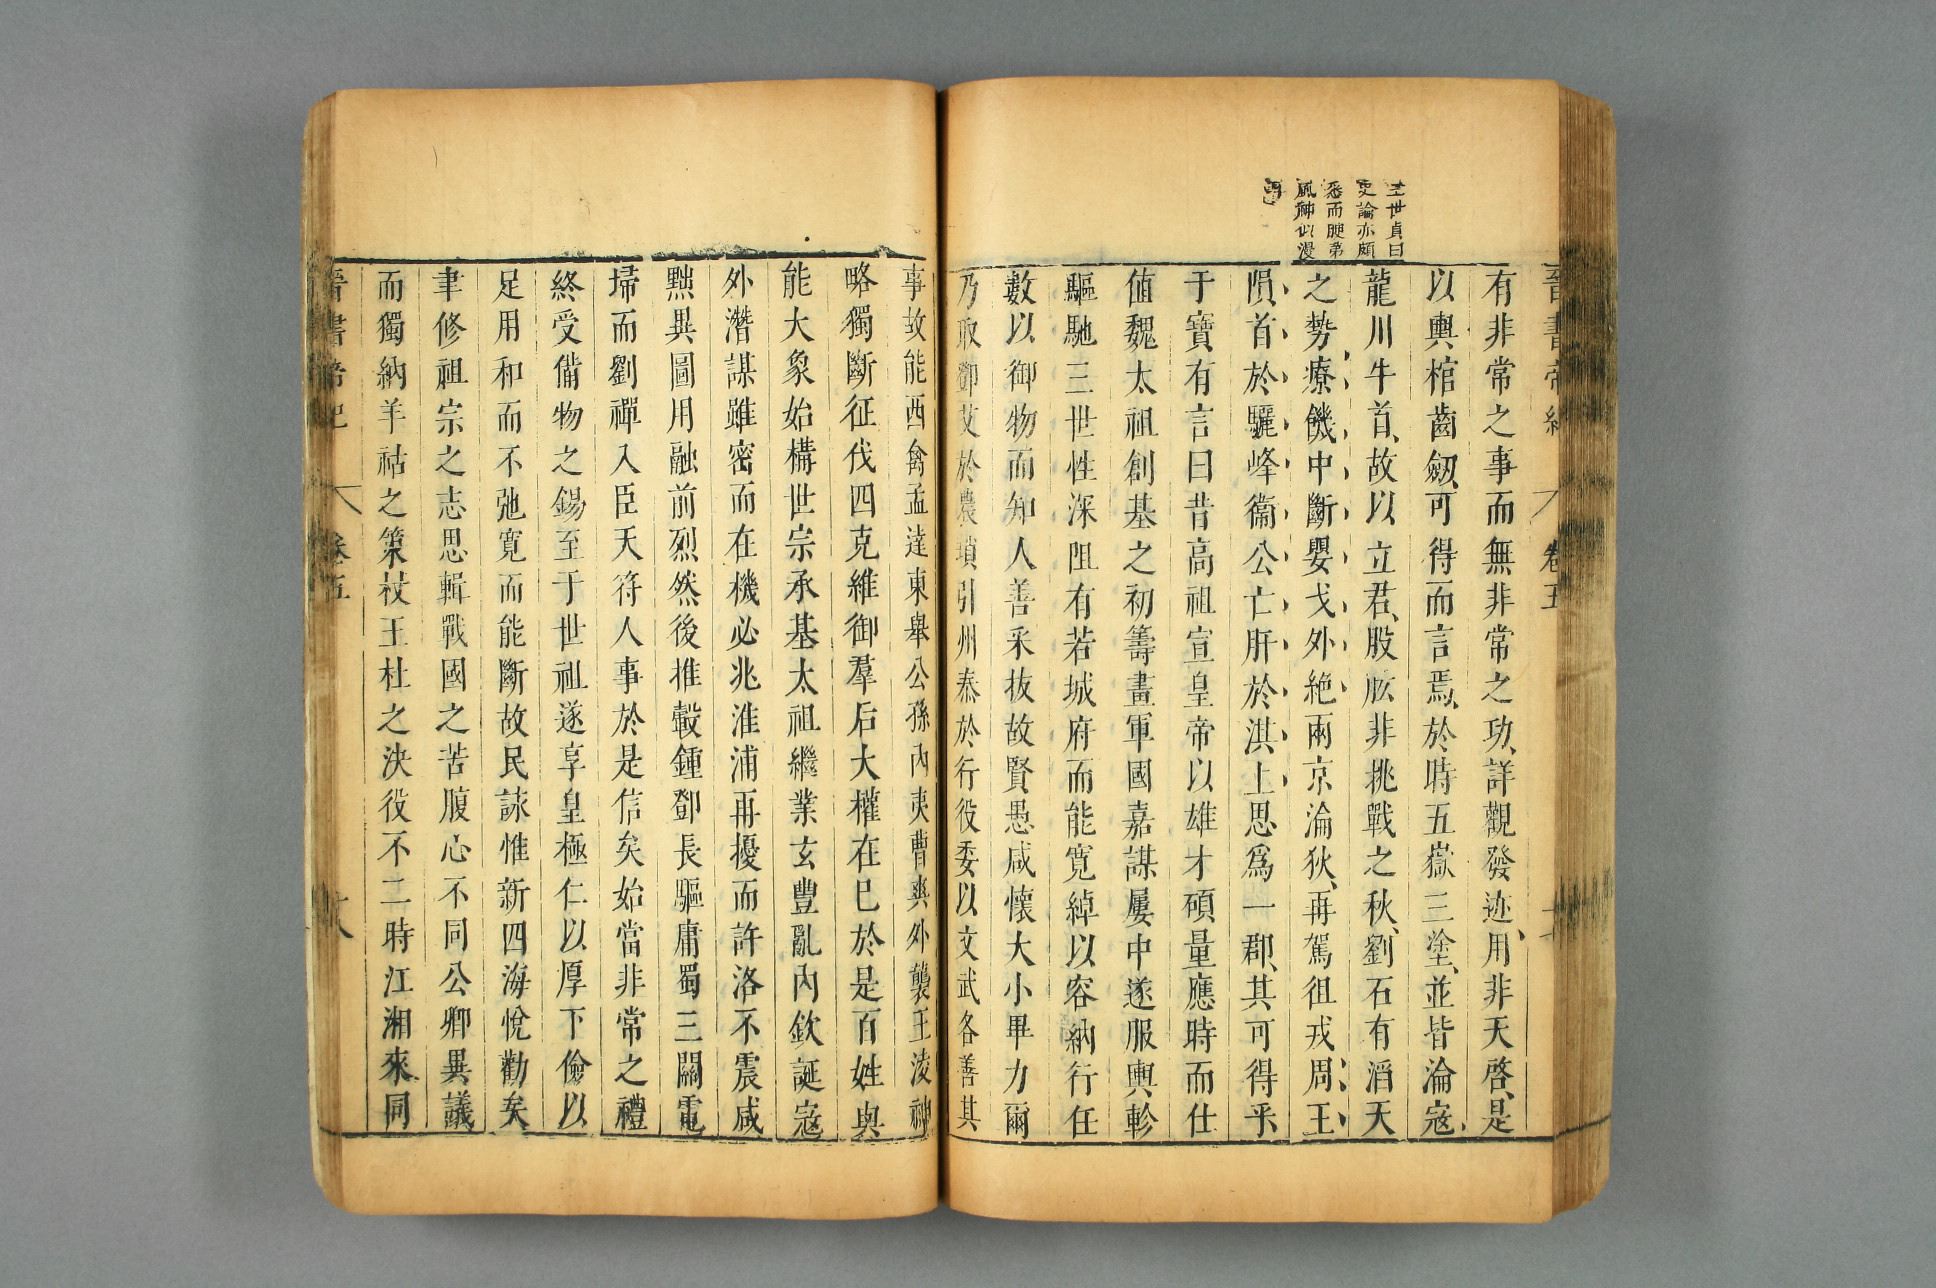 晉書帝紀 卷五
王世貞曰
史論亦頗
悉而腴弟
風神似漫
有非常之事而無非常之功詳觀發迹用非天啓是
以輿棺齒劔可得而言焉於時五嶽三塗並皆淪寇
龍川牛首故以立君股肱非挑戰之秋劉石有滔天
之勢療饑中斷嬰戈外絶兩京淪狄再駕徂戎周王
隕首於驪峰衞公亡肝於淇上思爲一郡其可得乎
于寶有言曰昔高祖宣皇帝以雄才碩量應時而仕
值魏太祖創基之初籌畫軍國嘉謀屢中遂服輿軫
驅馳三世性深阻有若城府而能寬綽以容納行任
數以御物而知人善采抜故賢愚咸懷大小畢力爾
乃取鄧艾於農瑣引州泰於行役委以文武各善其
事故能西禽孟達東舉公孫內夷曹爽外襲王淩神
略獨斷征伐四克維御羣后大權在巳於是百姓與
能大象始構世宗承基太祖繼業玄豐亂內欽誕寇
外潛謀雖密而在機必兆淮浦再擾而許洛不震咸
黜異圖用融前烈然後推轂鍾鄧長驅庸蜀三關電
埽而劉禪入臣天符人事於是信矣始當非常之禮
終受備物之錫至于世祖遂享皇極仁以厚下儉以
足用和而不弛寬而能斷故民詠惟新四海悅勸矣
聿修祖宗之志思輯戰國之苦腹心不同公卿異議
而獨納羊祜之策杖王杜之決役不二時江湘來同
晉書帝紀 卷五